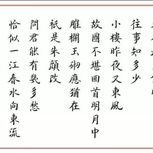 往事知多少
小樓昨夜又東風
故國不堪回首明月中
雕欄玉砌應猶在
祇是朱顏改
問君能有幾多愁
恰似一江春水向東流